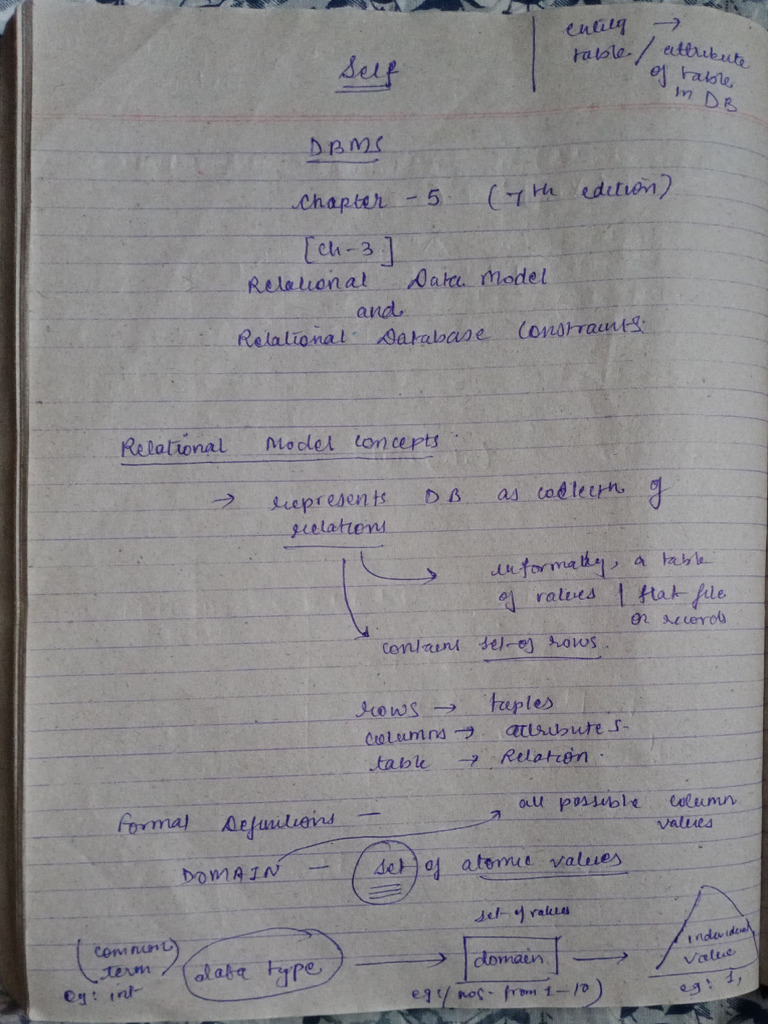 entity →
table / attribute
of table
in DB
Self
DBMS
Chapter - 5 (7th edition)
[Ch-3]
Relational Data Model
and
Relational Database Constraints.
Relational Model Concepts
→ represents DB as collectn of
relations
informally, a table
of values / flat file
or records
contains set of rows.
rows → tuples
columns → attributes.
table → Relation.
Formal Definitions —
all possible column
values
DOMAIN — set of atomic values
set of values
(common
term)
data type → domain → individual
value
eg: int
eg:(nos. from 1-10)
eg: 1,